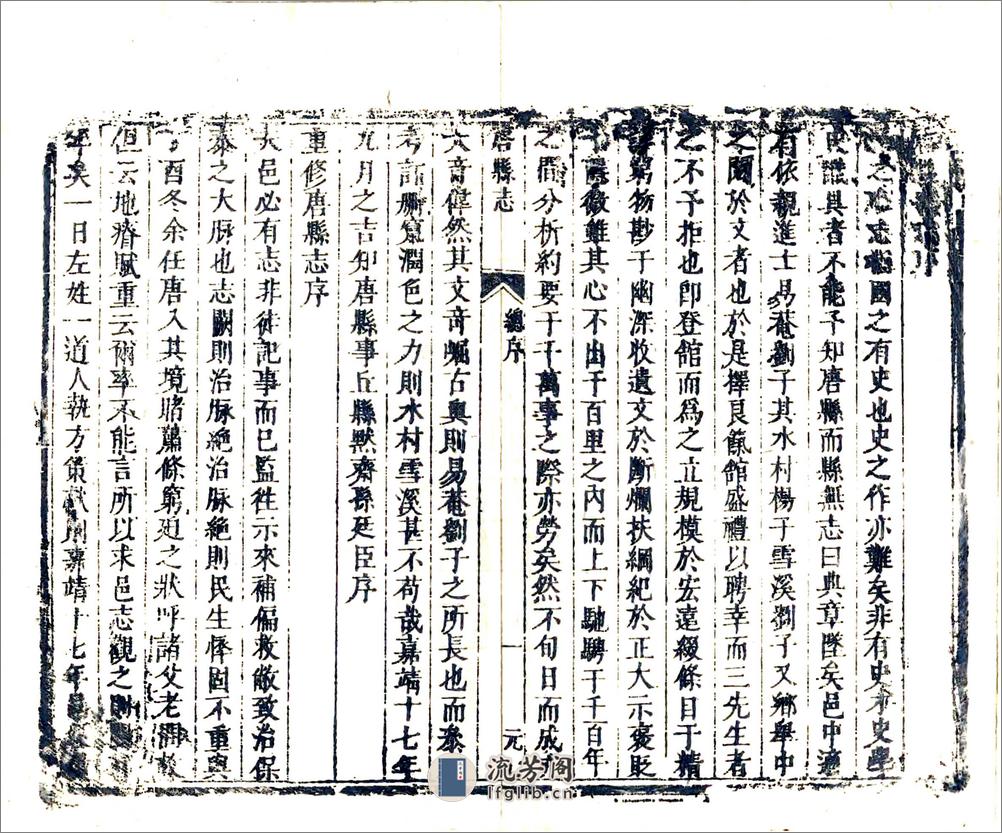 之志志猶國之有史也史之作亦難矣非有史才史學
史識其者不能予知唐縣而縣無志曰典章墜矣邑中適
有依親進士易菴劉子其水村楊子雪溪劉子又鄉舉中
之聞於文者也於是擇良飭館盛禮以聘幸而三先生者
之不予拒也即登館而為之立規模於宏遠綴條目于精
窮物勘于幽深收遺文於斷爛扶綱紀於正大示褒貶
微雖其心不出于百里之內而上下馳騁于千百年
之間分析約要于千萬事之際亦勞矣然不旬日而成
大音偉然其文奇崛古奧則易菴劉子之所長也而叅
考訂刪竄潤色之力則水村雪溪甚不苟哉嘉靖十七年
九月之吉知唐縣事丘縣默齋孫廷臣序
唐縣志
總序
一
元
重修唐縣志序
大邑必有志非徒記事而已監徃示來補偏救敝致治保
泰之大脉也志闕則治脉絶治脉絶則民生悴固不重與
酉冬余任唐入其境睹蕭條窮廹之狀呼諸父老
但云地瘠賦重云爾率不能言所以求邑志觀之則
年矣一日左姓一道人執方策獻則嘉靖十七年
流芳阁
lfglib.cn